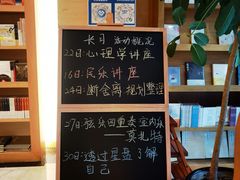 长日 活动概况
22日:心理学讲座
16日:民乐讲座
24日:断舍离 规划整理
27日:弦乐四重奏室内乐
——莫扎特
30日:透过星盘了解
自己